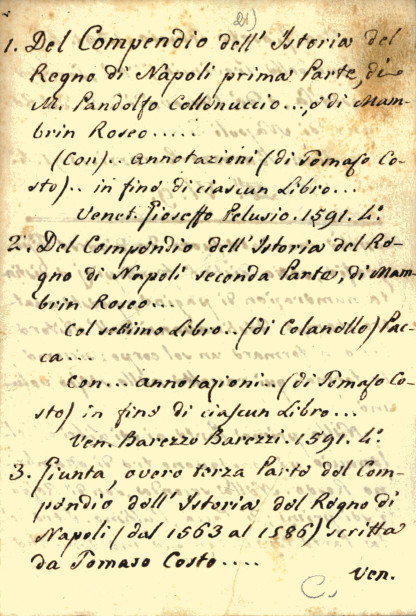 21)
1. Del Compendio dell' Istoria del
Regno di Napoli prima Parte, di
M. Pandolfo Collenuccio..., e di Mam-
brin Roseo.....
(Con).. annotazioni (di Tomaso Co-
sto).. in fine di ciascun Libro...
Venet. Gioseffo Pelusio. 1591. 4.°
2. Del Compendio dell' Istoria del Re-
gno di Napoli seconda Parte, di Mam-
brin Roseo...
Col settimo Libro.. (di Colanello) Pac-
ca....
Con... annotazioni.. (di Tomaso Co-
sto) in fine di ciascun Libro...
Ven. Barezzo Barezzi. 1591. 4.°
3. Giunta, overo terza Parte del Com-
pendio dell' Istoria del Regno di
Napoli (dal 1563 al 1586) scritta
da Tomaso Costo....
Ven.